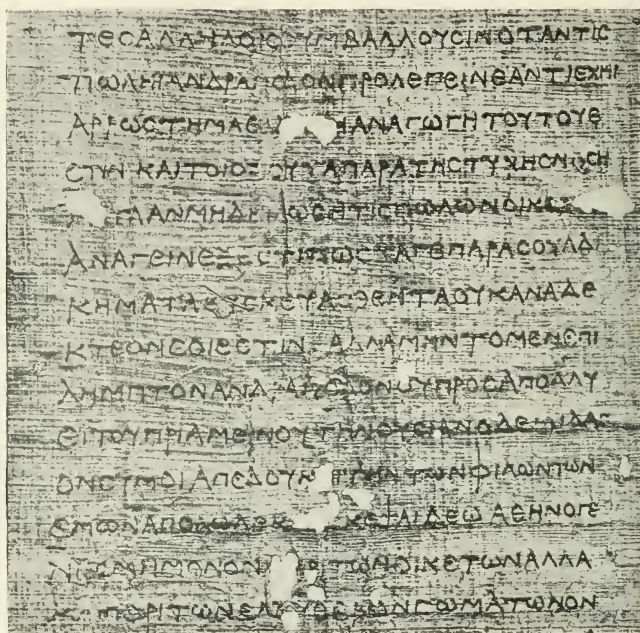 ΤΕΣ ΑΛΛΗΛΟΙΣ ΣΥΜΒΑΛΛΟΥΣΙΝ ΟΤΑΝ ΤΙΣ
ΠΩΛΗ ΑΝΔΡΑΠΟΔΟΝ ΠΡΟΛΕΓΕΙΝ ΕΑΝ ΤΙ ΕΧΗΙ
ΑΡΡΩΣΤΗΜΑ Η ΑΝΑΓΩΓΗ ΤΟΥΤΟΥ Ε
ΣΤΙΝ ΚΑΙΤΟΙ ΟΠΟΥ ΤΑ ΠΑΡΑ ΤΗΣ ΤΥΧΗΣ ΝΟΣΗ
ΑΝ ΜΗ ΔΗΛΩΣΗ ΤΙΣ ΠΩΛΩΝ ΟΙΚΕ
ΑΝΑΓΕΙΝ ΕΞΕΣΤΙ ΠΩΣ ΤΑ ΓΕ ΠΑΡΑ ΣΟΥ ΑΔΙ
ΚΗΜΑΤΑ ΣΥΣΚΕΥΑΣΘΕΝΤΑ ΟΥΚ ΑΝΑΔΕ
ΚΤΕΟΝ ΣΟΙ ΕΣΤΙΝ ΑΛΛΑ ΜΗΝ ΤΟ ΜΕΝ ΕΠΙ
ΛΗΜΠΤΟΝ ΑΝΔΡΑΠΟΔΟΝ ΟΥ ΠΡΟΣΑΠΟΛΛΥ
ΕΙ ΤΟΥ ΠΡΙΑΜΕΝΟΥ ΤΗΝ ΟΥΣΙΑΝ Ο ΔΕ ΜΙΔΑΣ
ΟΝ ΣΥ ΜΟΙ ΑΠΕΔΟΥ ΚΑΙ ΤΗΝ ΤΩΝ ΦΙΛΩΝ ΤΩΝ
ΕΜΩΝ ΑΠΟΛΩΛΕΚΕ ΣΚΕΨΑΙ ΔΕ Ω ΑΘΗΝΟΓΕ
ΝΕΣ ΜΗ ΜΟΝΟΝ ΠΕΡΙ ΤΩΝ ΟΙΚΕΤΩΝ ΑΛΛΑ
ΚΑΙ ΠΕΡΙ ΤΩΝ ΕΛΕΥΘΕΡΩΝ ΣΩΜΑΤΩΝ ΟΝ